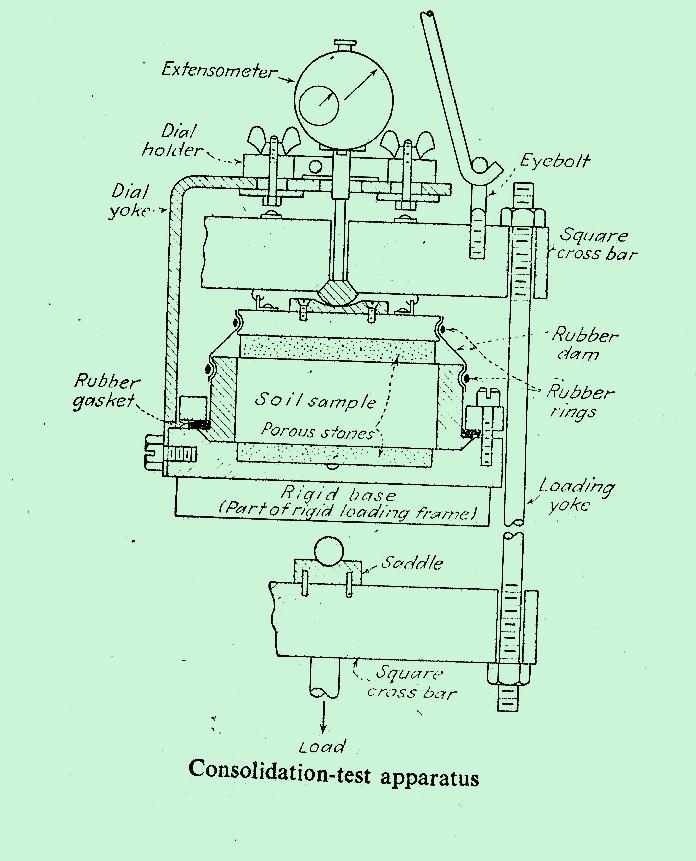 Extensometer
Dial
holder
Dial
yoke
Eyebolt
Square
cross bar
Rubber
dam
Rubber
rings
Rubber
gasket
Soil sample
Porous stones
Rigid base
(Part of rigid loading frame)
Loading
yoke
Saddle
Square
cross bar
Load
Consolidation-test apparatus